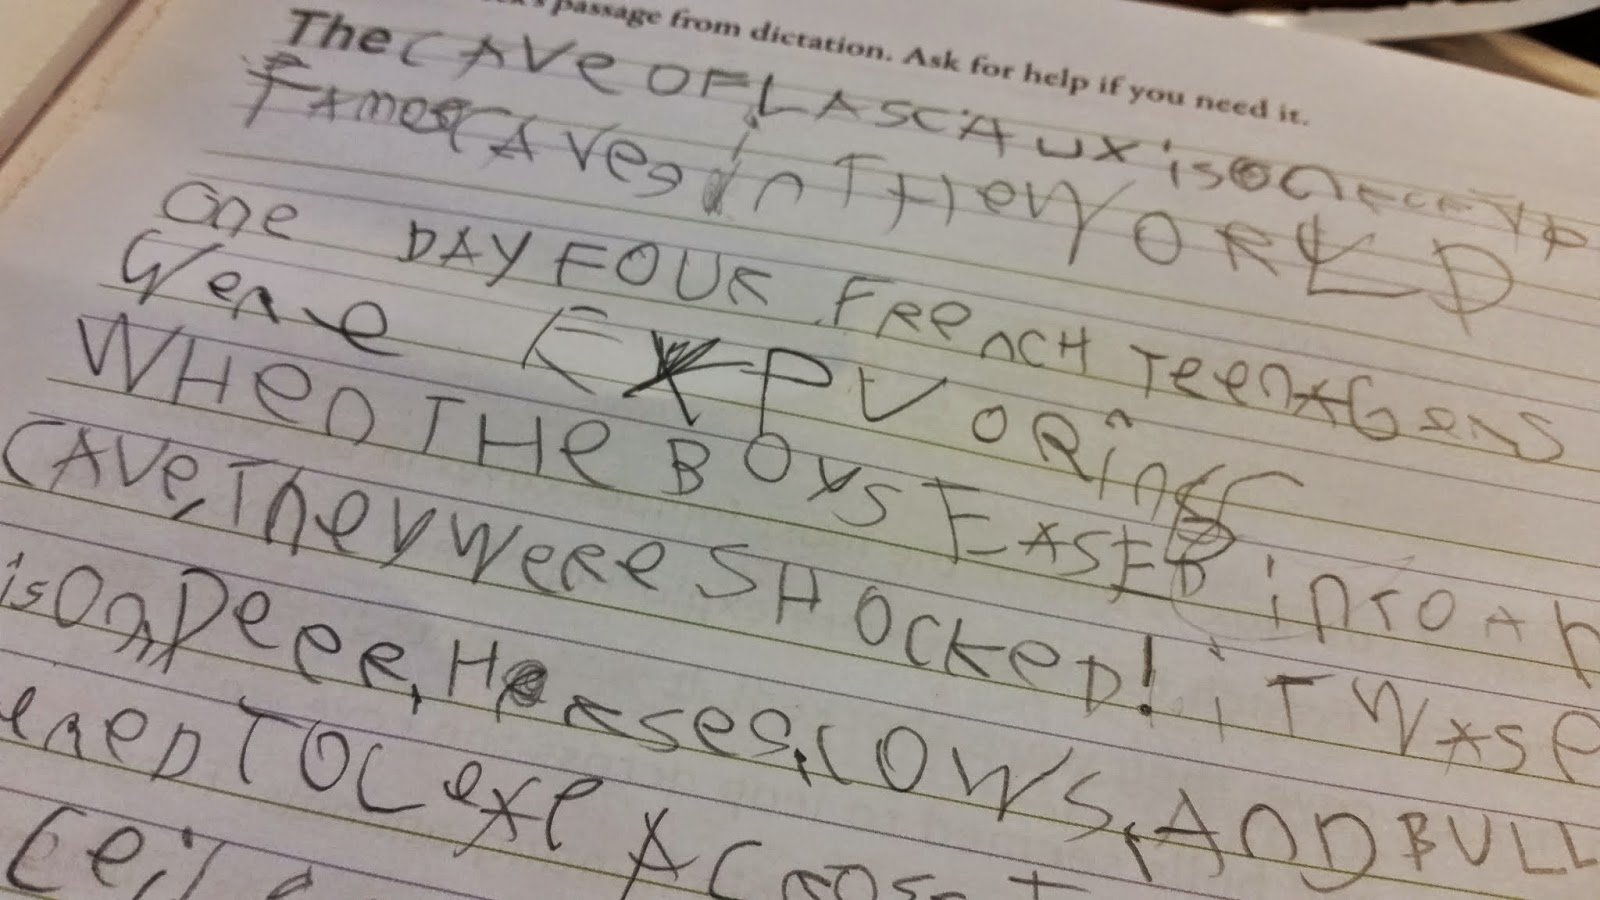 passage from dictation. Ask for help if you need it.
The CAVe OF LASCAUX is One
FAmos CAVes in THe WORLD
One DAY FOUR FRenCH TeenAGeRs
Were EXPLORing
WHen THe BOYS EASED inTO An
CAVe, They WeRe SHOCKeD! iT WAS
isOn, DeeR, HoRses, COWS, AnD BULL
eReD TO LeXe ACROSS
Ceil